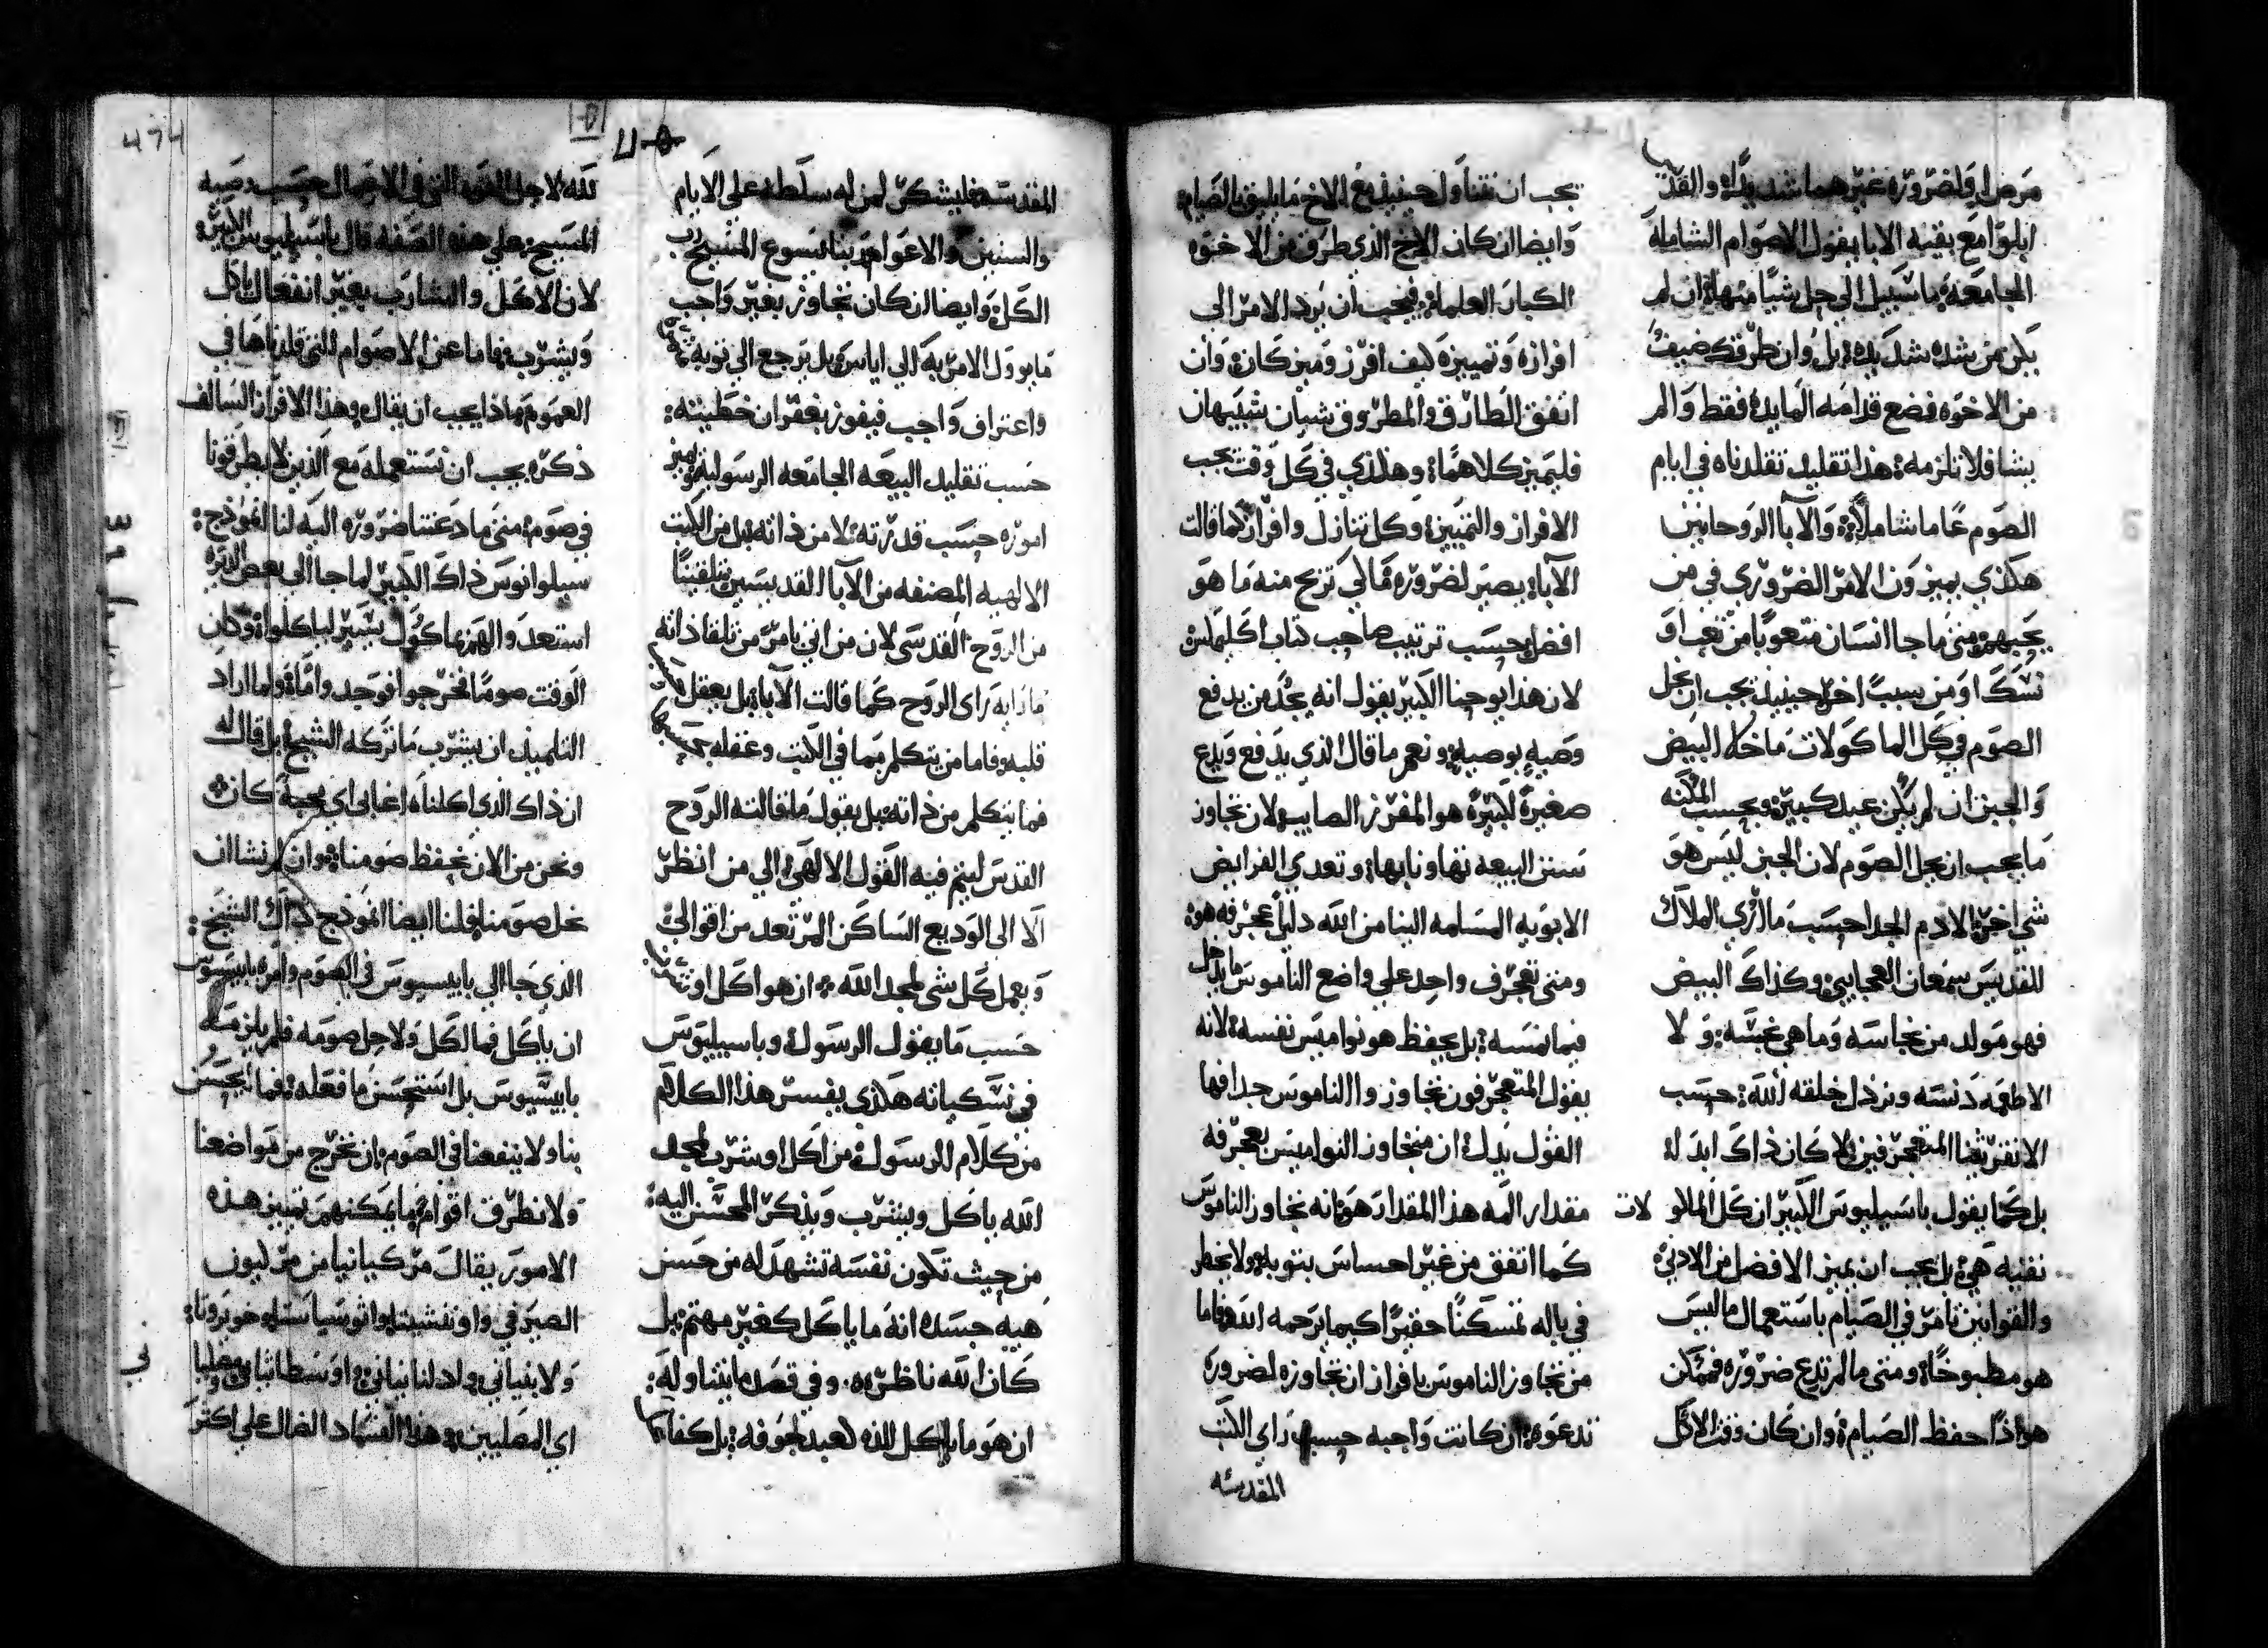 مرض او لضروره غيرهما شديده والقديس
ايلوا مع بقيه الابا يقول الاصوام الشامله
الجامعه ما سبيل الي حل شيا منها ان لم
يكن من شده شديده بل وان طرقك ضيف
من الاخوه فضع قدامه المايده فقط والم
يشا فلا تلزمه هذا تقليد تقلدناه في ايام
الصوم عاما شاملا والابا الروحانيين
هكذي يميزون الامر الضروري في من
يجيهم متي ما جا انسان متعوبا من تعب او
نسك او من سبب اخر حينيذ يجب ان يحل
الصوم في كل الماكولات ما خلا البيض
والجبن ان لم يكن عيد كبير وبحسب المكنه
ما يجب ان يحل الصوم لان الجبن ليس هو
شي اخر الا دم الجدا حسب ما اري الملاك
للقديس سمعان العجايبي وكذاك البيض
فهو مولد من نجاسه وما هي غبشه ولا
الاطعمه دنسه ونرذل خلقه الله حسب
الانقريثنا المتعجرفين لا كان ذاك ابدا
بل كما يقول باسيليوس الكبير ان كل الماكولات
نقيه هي بل يجب ان يميز الافضل من الادني
والقوانين تامر في الصيام باستعمال ما ليس
هو مطبوخا ومتي ما لم تدع ضروره فممكن
هو اذا حفظ الصيام وان كان وقت الاكل
يجب ان نتناول حينيذ مع الاخ ما يليق بالصيام
وايضا ان كان الاخ الذي طرق من الاخوه
الكبار العلما فيجب ان يرد الامر الي
افرازه وتمييزه كيف افرز وميز كان وان
اتفق الطارق والمطروق شيان شبيهان
فليميز كلاهما وهكذي في كل وقت يجب
الافراز والتمييز وكل تنازل وافراز كما قالت
الابا يصير لضروره فالي تربح منه ما هو
افضل حسب ترتيب صاحب كتاب اكليمكس
لان هذا يوحنا الكبير يقول انه يجد من يدفع
وصيه بوصيه ونعم ما قال الذي يدفع ويدع
صغيره لكبيره هو المفرز الصايب لان تجاوز
سنن البيعه تهاونا بها وتعدي الفرايض
الابويه المسلمه الينا من الله دليل عجرفه هو
ومتي تعجرف واحد علي واضع الناموس ما يدخل
فيما نمسه بل يحفظ هو نواميس نفسه لانه
يقول المتعجرفون تجاوزوا الناموس جدا فها
القول يدل ان متجاوز النواميس بعجرفه
مقدار المه هذا المقدار هو انه تجاوز الناموس
كما اتفق من غير احساس بتوبه ولا يخطر
في باله تمسكنا حقيرا كيما يرحمه الله فاما
من تجاوز الناموس بافراز ان تجاوزه لضروره
تدعوه ان كانت واجبه حسب راي الكتب
المقدسه
المقدسه فليشكر لمن له سلطه علي الايام
والسنين والاعوام ربنا يسوع المسيح رب
الكل وايضا ان كان تجاوز بغير واجب
ما يوول الامر به الي اياس بل يرجع الي توبه
واعتراف واجب فيفوز بغفران خطيته
حسب تقليد البيعه الجامعه الرسوليه ويميز
اموره حسب قدرته لا من ذاته بل من الكتب
الالهيه المصنفه من الابا القديسين تلقينا
من الروح القدسي لان من اين يامر من تلقا ذاته
ما رايه راي الروح كما قالت الابا بل بعقل
قلبه فاما من يتكلم بما في الكتب وعقله
فما يتكلم من ذاته بل يقول ما قالته الروح
القدس ليتم فيه القول الالهي الي من انظر
الا الي الوديع الساكن المرتعد من اقوالي
ويعمل كل شي لمجد الله ان هو اكل او
حسب ما يقول الرسول وباسيليوس
في نسكياته هكذي يفسر هذا الكلام
من كلام الرسول من اكل او شرب لمجد
الله ياكل ويشرب ويذكر المحسن اليه
من حيث تكون نفسه تشهد له من حسن
هيه جسده انه ما ياكل كغير مهتم بل
كان الله ناظره وفي قصد ما يتناوله
ان هو ما ياكل للذه كعبد لجوفه بل كفاعل
لله لاجل القوه التي في الاعمال حسب وصيه
المسيح علي هذه الصفه قال باسيليوس الكبير
لان الاكل والشارب بغير انفعال ياكل
ويشرب فاما عن الاصوام التي قلناها في
العموم ماذا يجب ان يقال وهذا الافراز السالف
ذكره يجب ان نستعمله مع الذين لا يطرقونا
في صوم متي ما دعتنا ضروره اليه لنا انموذج
سيلوانوس ذاك الكبير لما جا الي بعض الديره
استعد والهم ماكول يسير لياكلوا وكان
الوقت صوما فخرجوا فوجدوا ما ولما اراد
التلميذ ان يشرب ما تركه الشيخ بل قال له
ان ذاك الذي اكلناه اغابي اي محبه كان
ونحن من الان نحفظ صومنا وان لم نشا ان
نحل صومنا فلنا ايضا انموذج ذاك الشيخ
الذي جا الي بابيسيوس في الصوم وامره بابيسيوس
ان ياكل فما اكل ولا حل صومه فلم يلزمه
بابيسيوس بل استحسن ما فعله فما يحسن
بنا ولا ينفعنا في الصوم ان نخرج من مواضعنا
ولا نطرق اقواما ما يمكنهم تمييز هذه
الامور يقال مركيانيا من مركيون
ولا بنياني
اي المصليين وهذا الفساد الضال علي اكثر